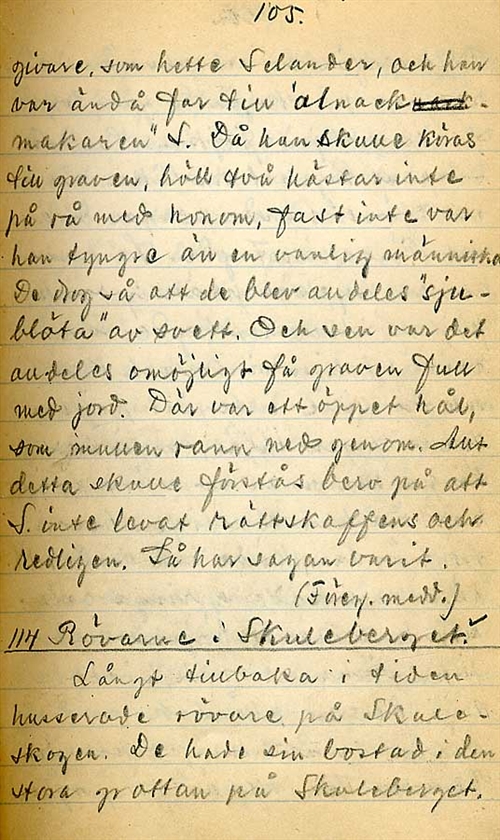 105.
givare, som hette Selander, och han
var ändå far till "alnack
makaren" S. Då han skulle köras
till graven, höll två hästar inte
på rå med honom, fast inte var
han tyngre än en vanlig människa
De drog så att de blev alldeles "sju-
blöta" av svett. Och sen var det
alldeles omöjligt få graven full
med jord. Där var ett öppet hål,
som mullen rann ned genom. Allt
detta skulle förstås bero på att
S. inte levat rättskaffens och
redligen. Så har sagan varit.
(Föreg. medd.)
114 Rövarne i Skuleberget.
Långt tillbaka i tiden
husserade rövare på Skule-
skogen. De hade sin bostad i den
stora grottan på Skuleberget.